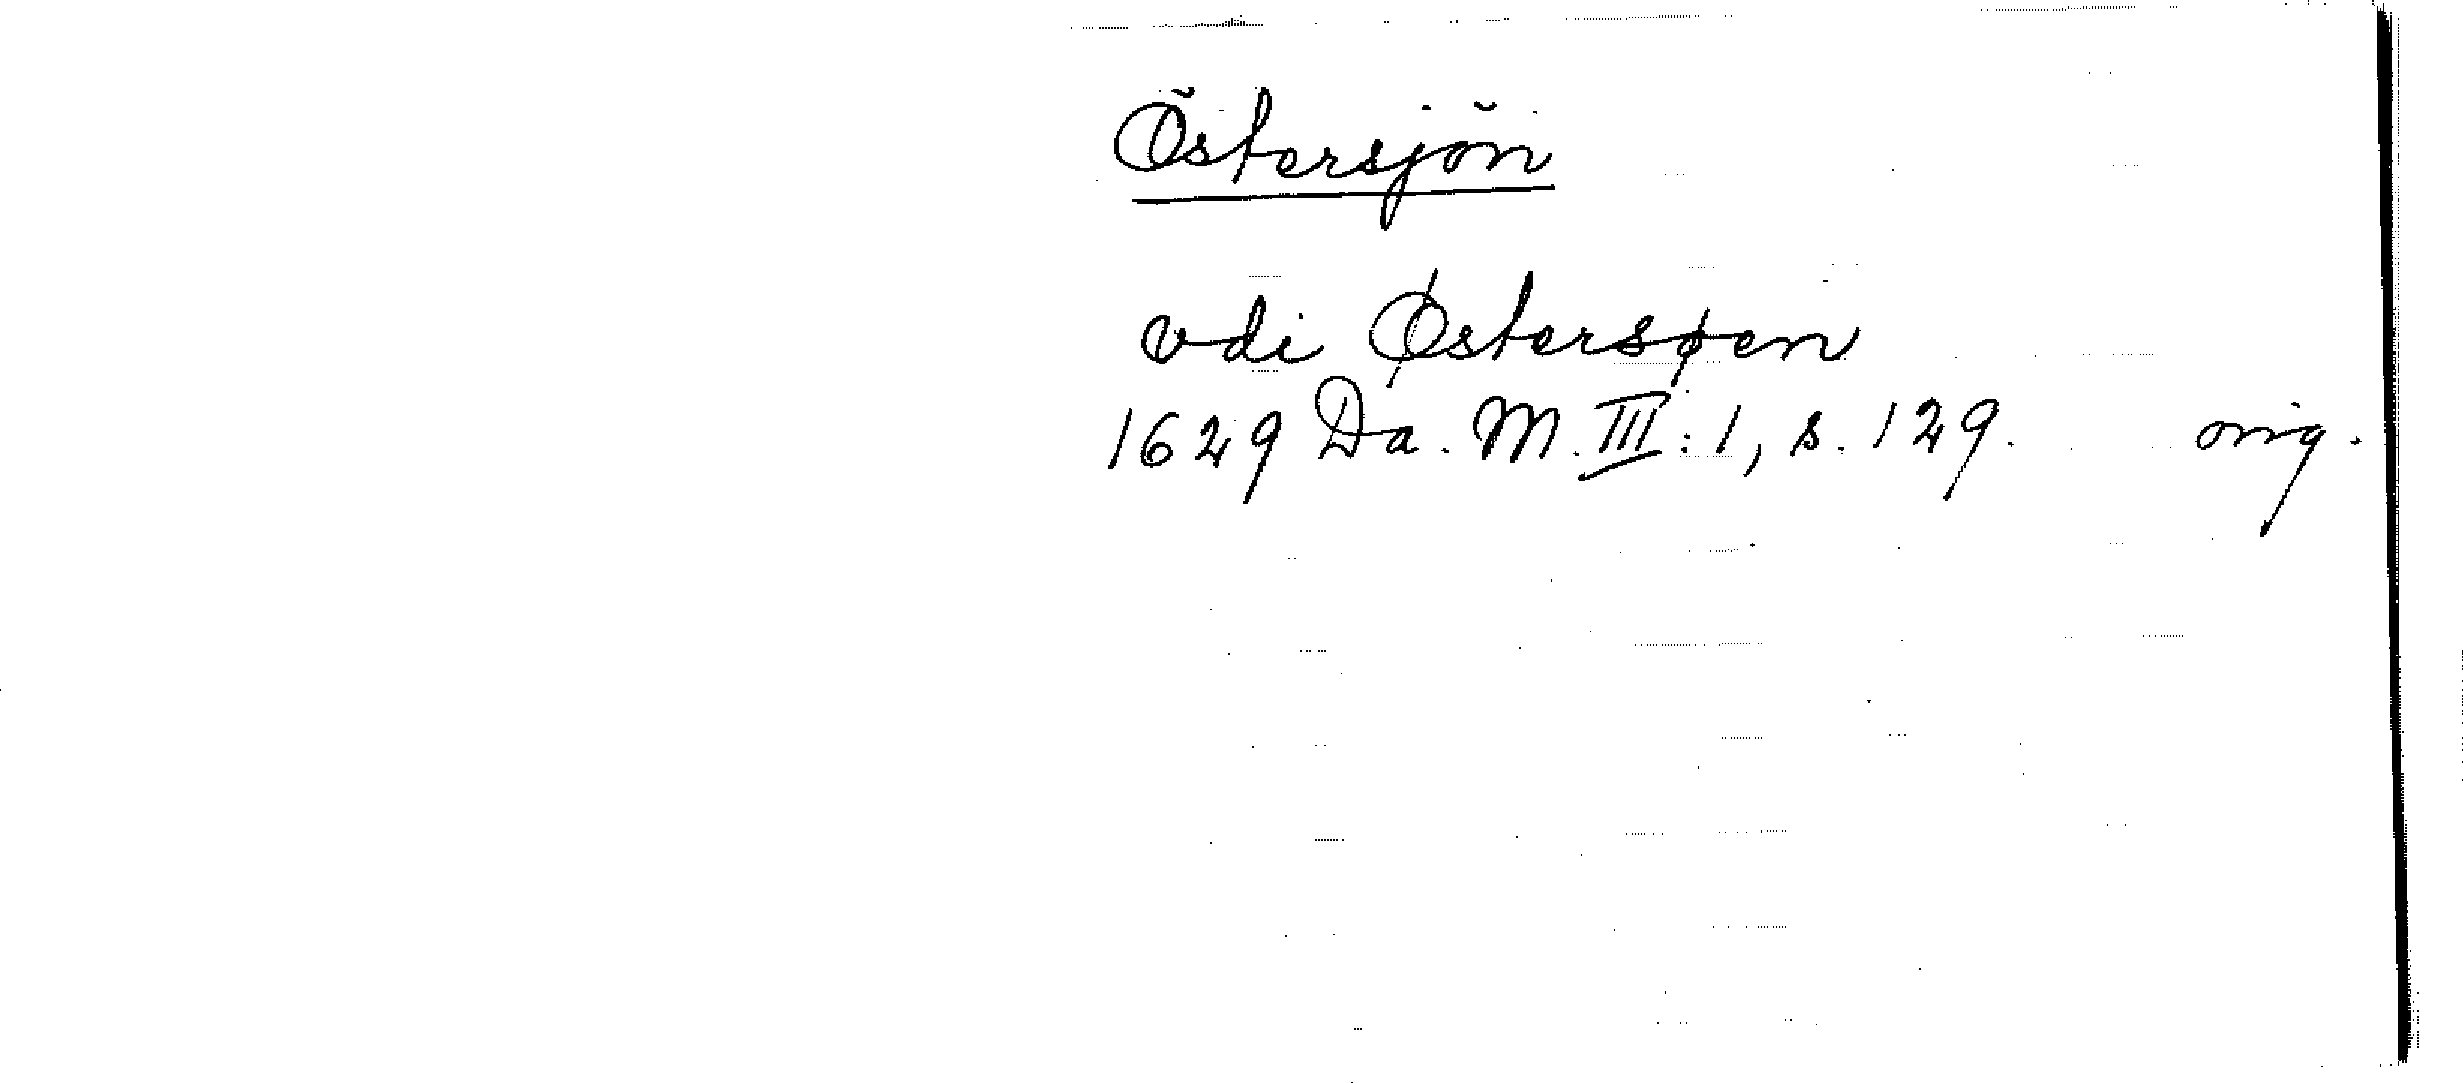 Östersjön
vdi Østersøen
1629 Da. M. III: 1, s. 129. orig.